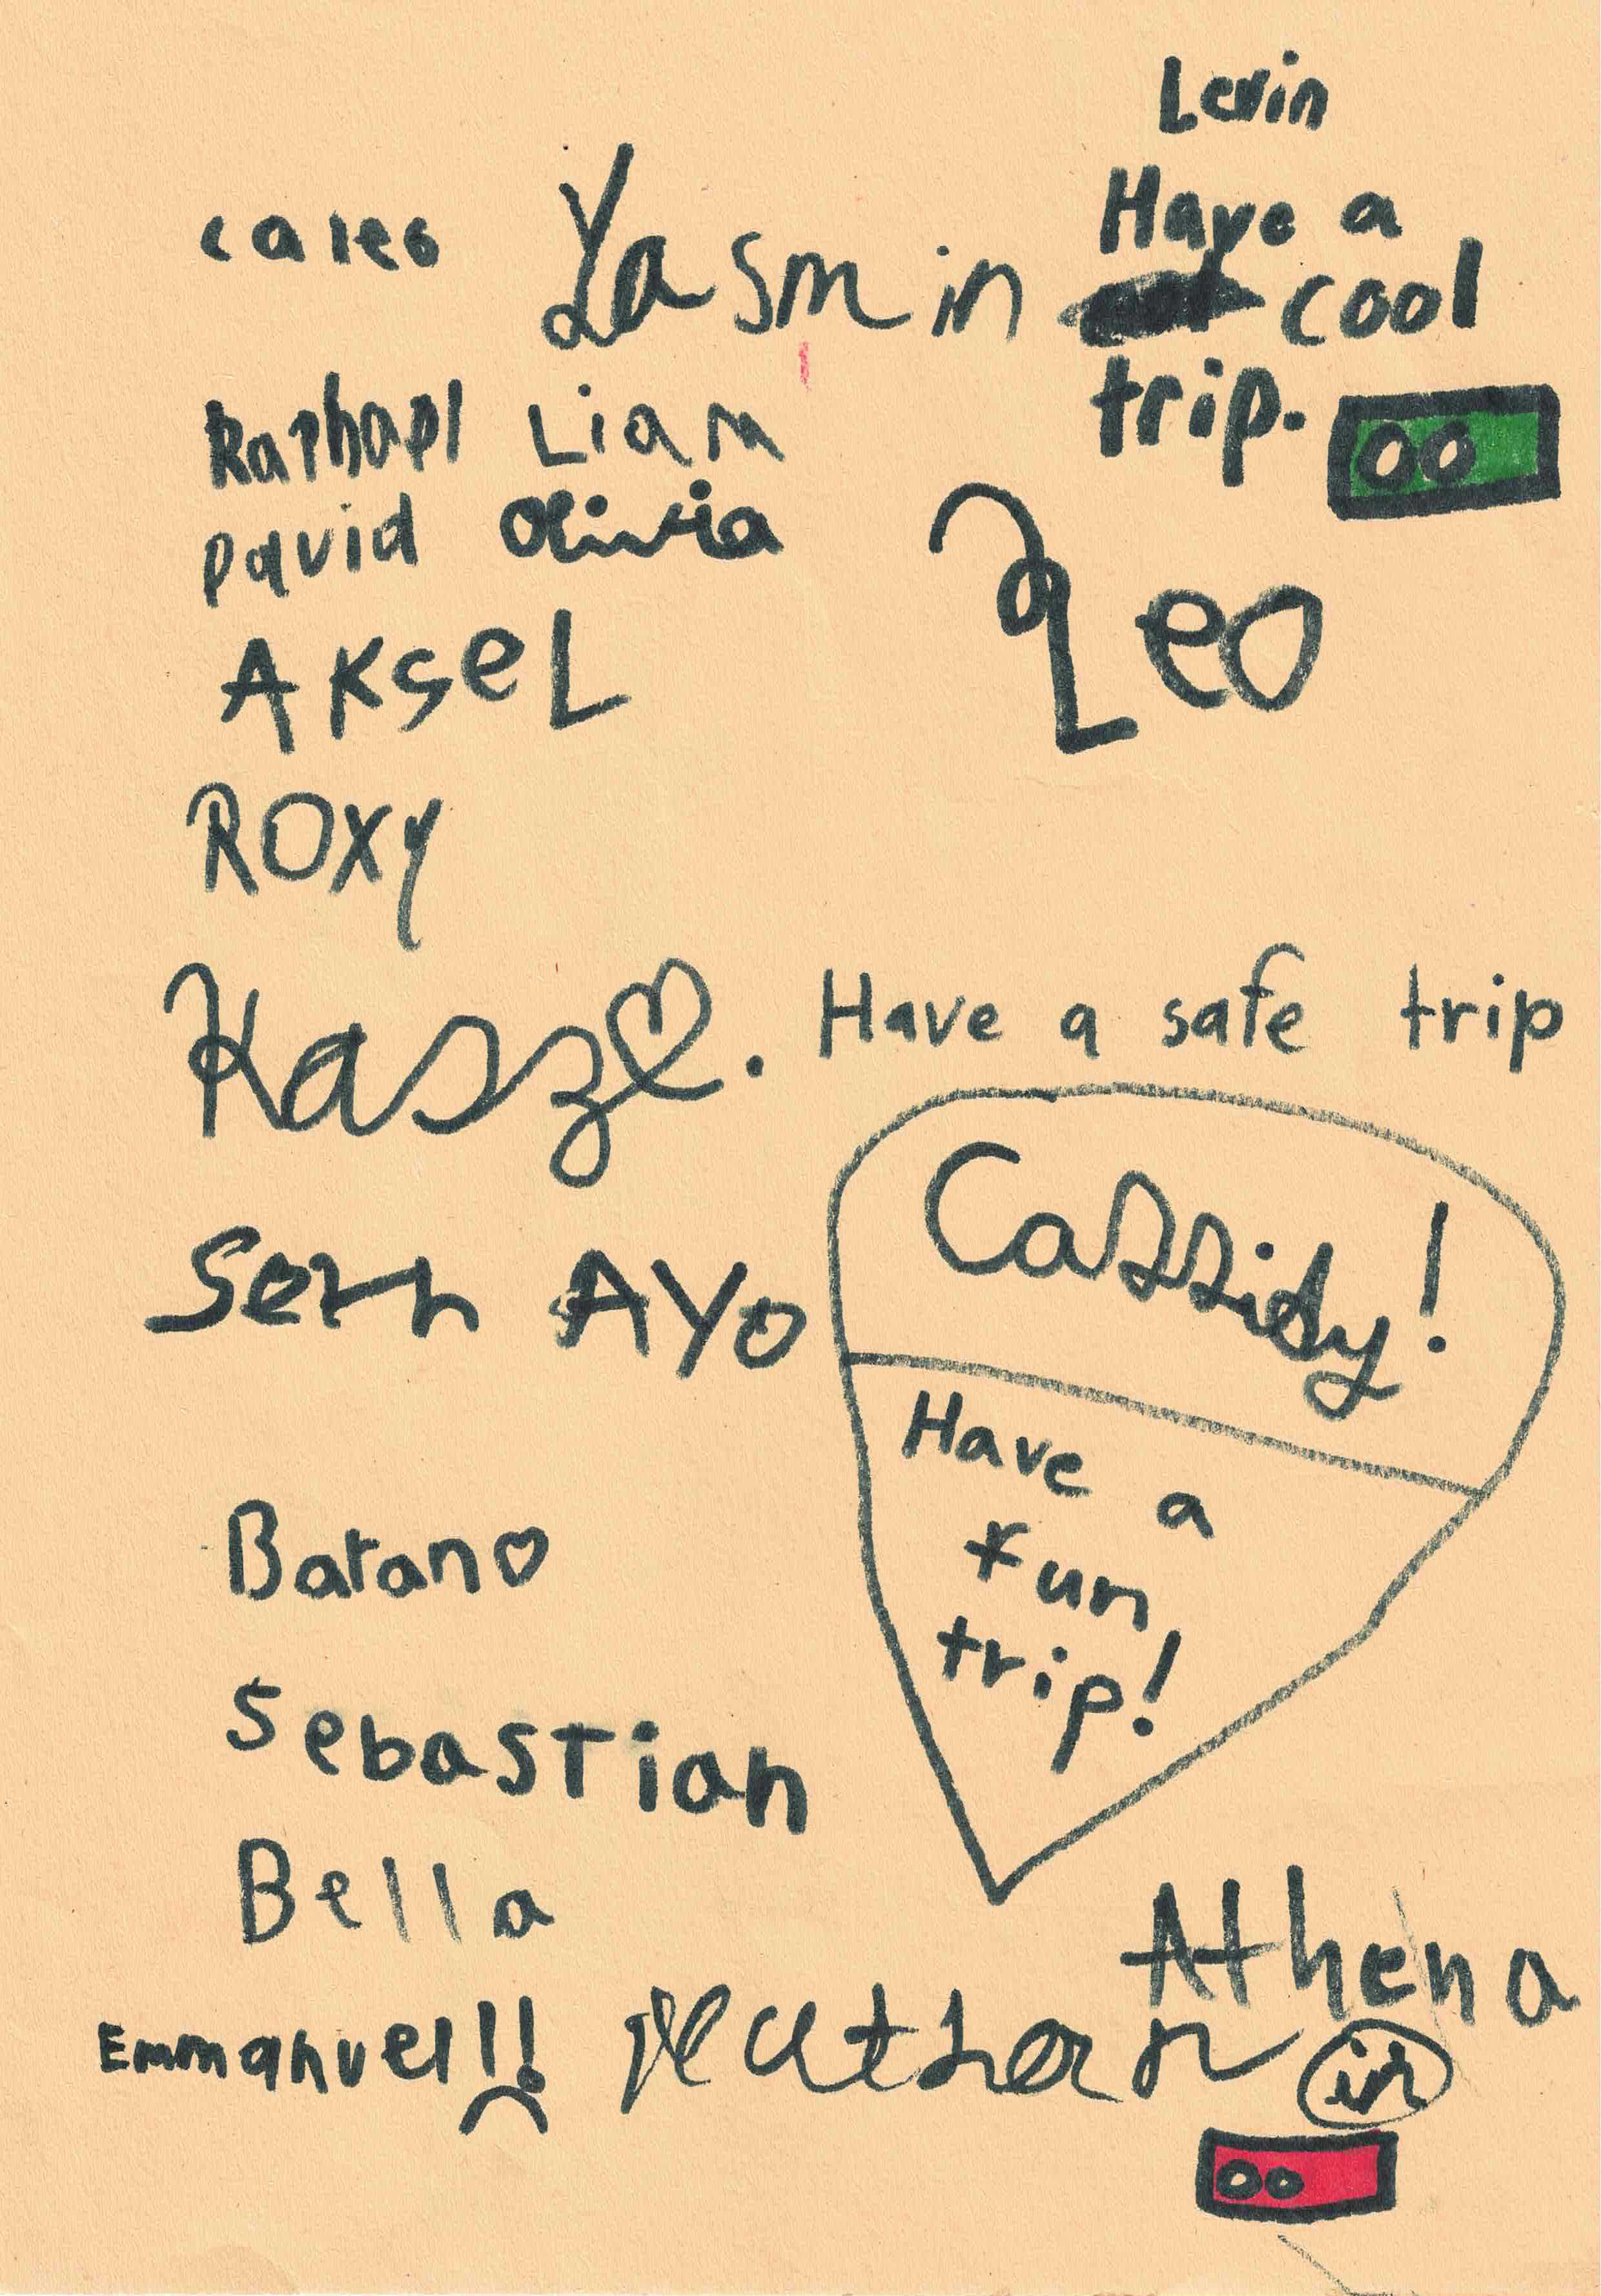 Levin
Have a
cool
trip.
Yasmin
Raphael Liam
David Olivia
Leo
AKSeL
ROXY
Kassz
. Have a safe trip
Cassidy!
Have a
fun
trip!
AYO
Batano
SebaSTian
Bella
Athena
Emmanuel!! Nathan